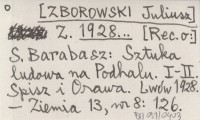 [ZBOROWSKI Juliusz]
Z. 1928... [Rec. o:]
S. Barabasz: Sztuka
ludowa na Podhalu. I-II.
Spisz i Orawa. Lwów 1928.
— Ziemia 13, nr 8: 126.